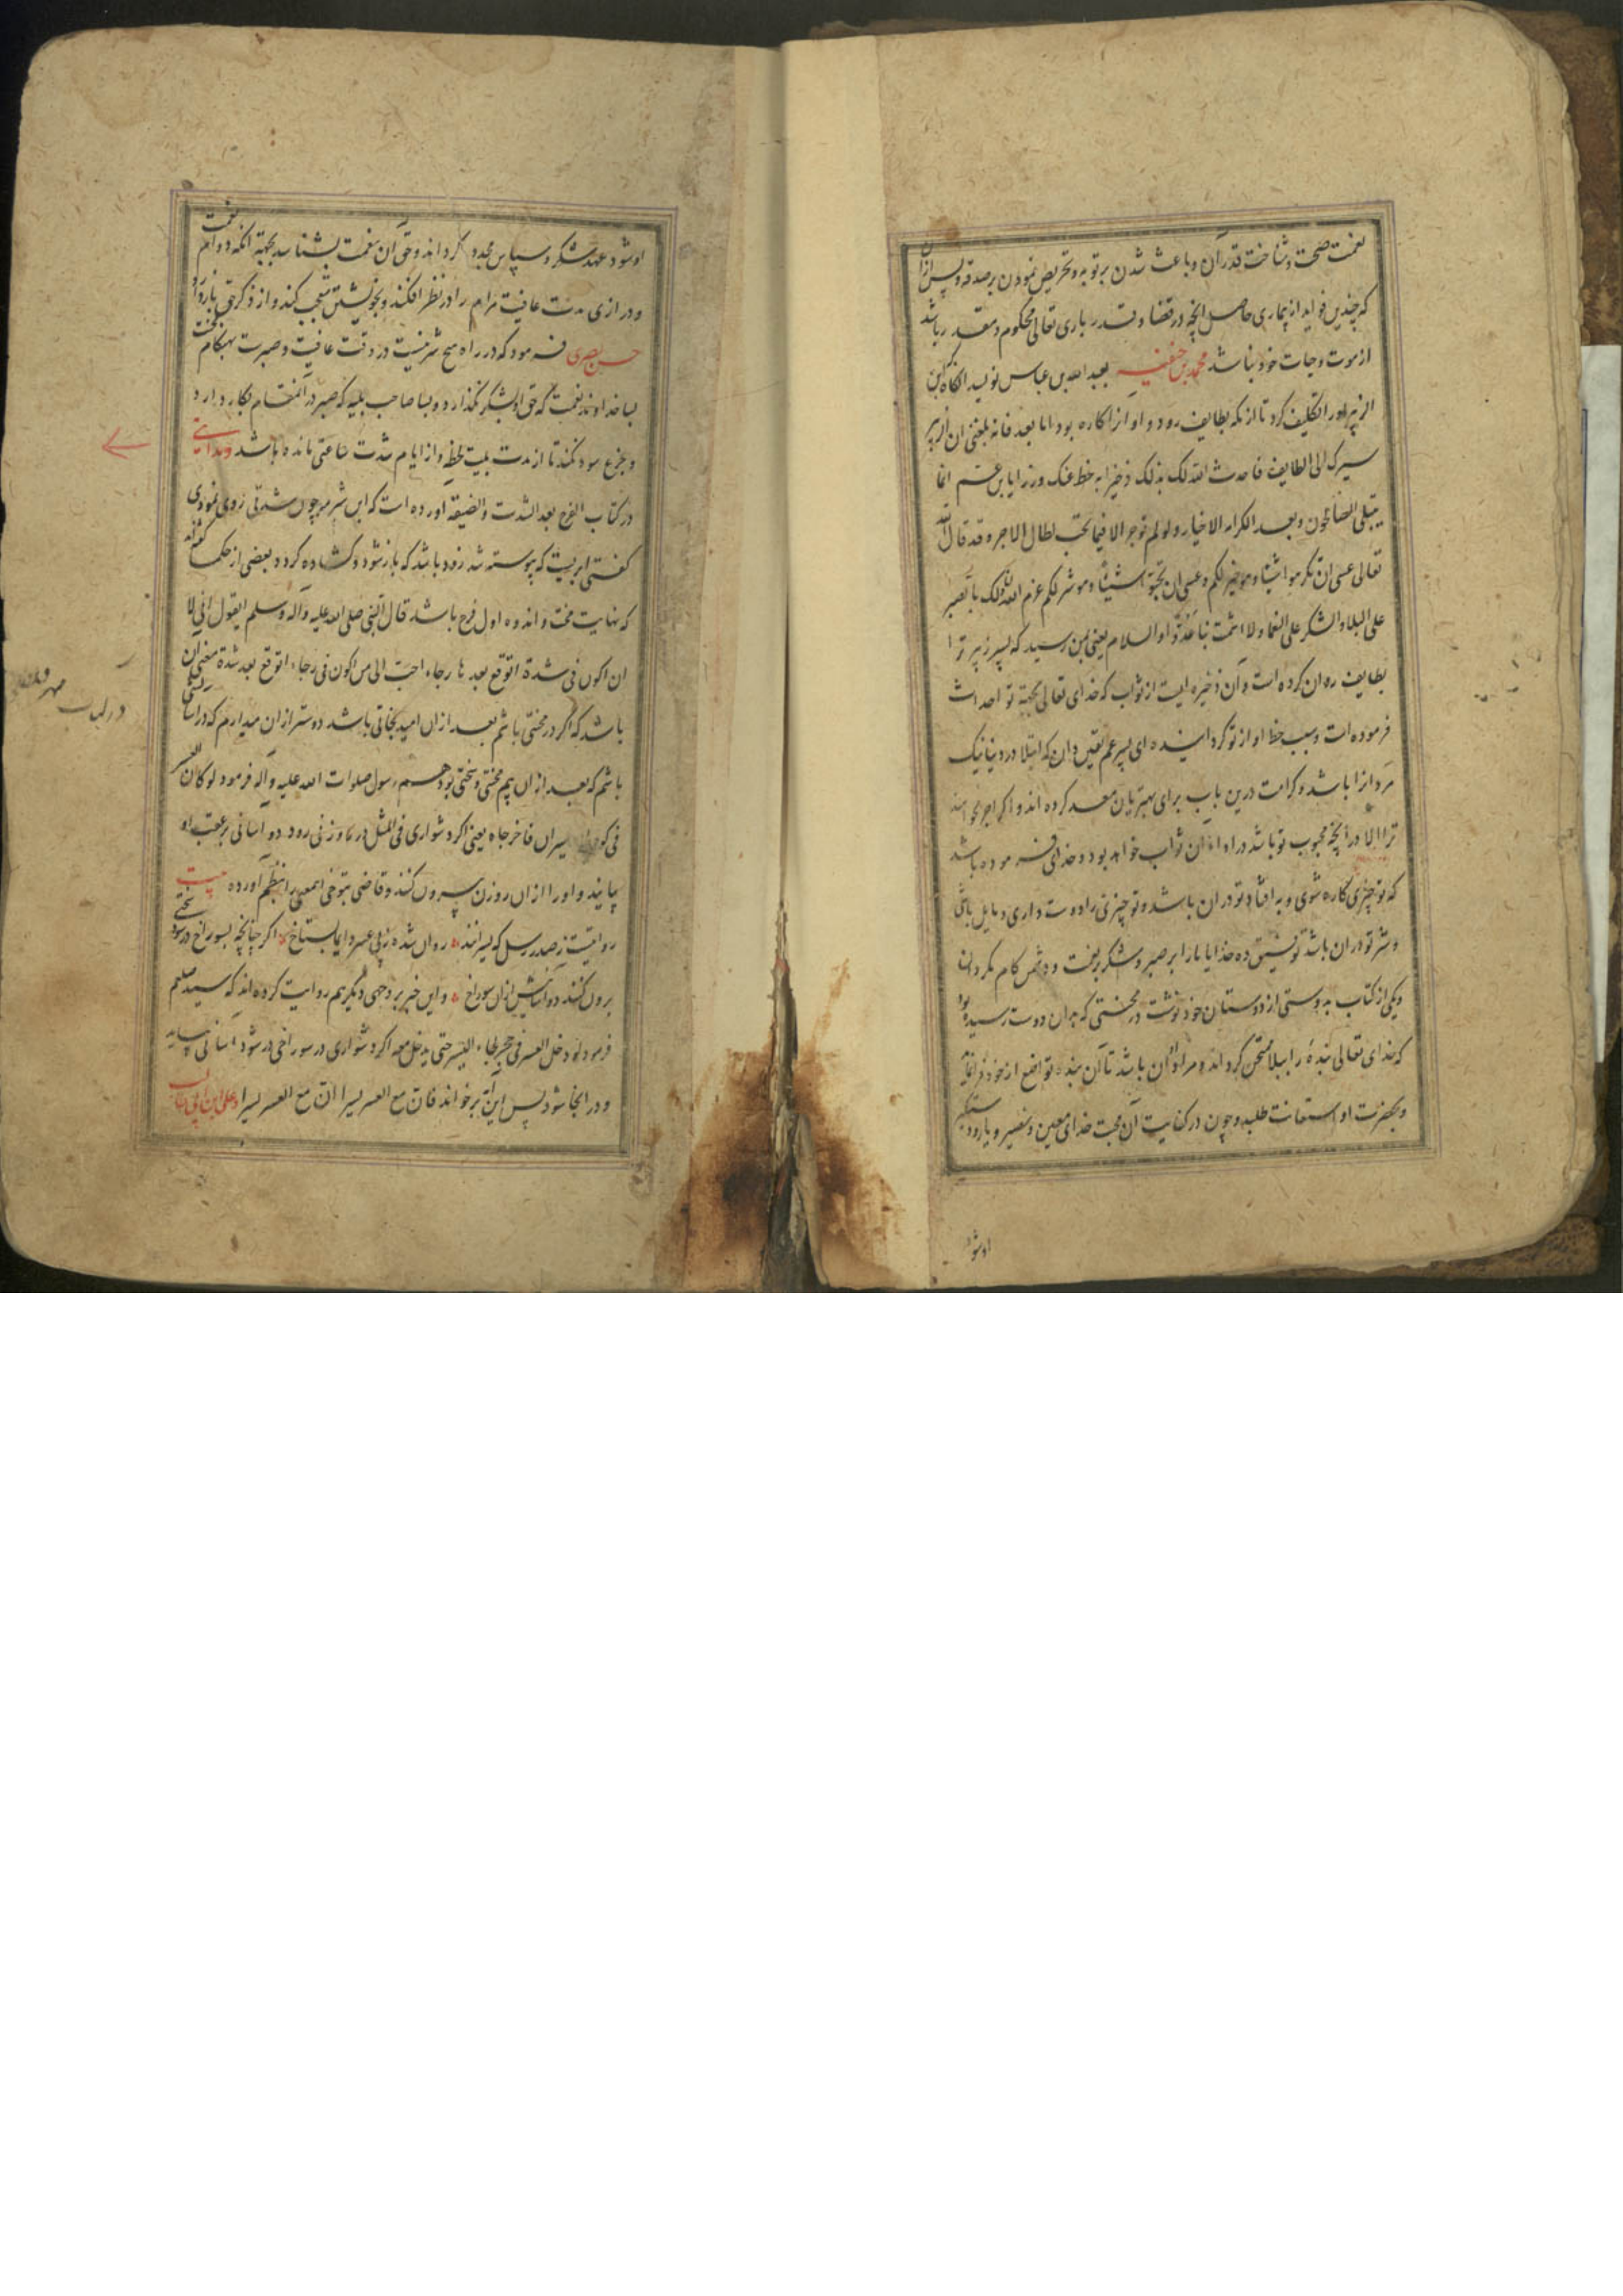 نعمت صحت و شناخت قدر آن و باعث شدن بر توبه و تحریص نمودن بر صدقه و پس ازان
که چندین فواید از بیماری حاصل انچه در قضا و قدر باری تعالی محکوم و مقدر باشد
از موت و حیات خود بنا شد محمد بن حنفیه بعبد الله بن عباس نویسد انگاه که ابن
الزبیر او را تکلیف کرد تا از مکه بطایف رود و او از ان کاره بود اما بعد فانه بلغنی ان ابن الزبیر
سیرک الی الطایف فاحدث الله لک بذلک ذخرا به خط عنک وزرا یا بن عم انما
یبتلی الصالحون و یعد الکرامه الاخیار و لو لم توجر الا فیما تحب لقال الاجر و قد قال الله
تعالی عسی ان تکرهوا شیئا و هو خیر لکم و عسی ان تحبوا شیئا و هو شر لکم عزم الله لک بالصبر
علی البلاء و الشکر علی النعما و لا اشمت بنا عدوا و السلام یعنی بمن رسید که پسر زبیر ترا
بطایف روان کرده است و آن ذخیره ایست از ثواب که خدای تعالی بجهة تو احداث
فرموده است و سبب خط او از تو گردانیده ای پسر عم یقین دان که ابتلا در دنیا نیک
مردانرا باشد و کرامت درین باب برای بهتریان معد کرده اند و اگر اجر نخواهند
ترا الا در انچه محبوب تو باشد در او ان ثواب خواهد بود و خدای فرموده باشد
که تو چیزی کاره شوی و به افتاد تو دران باشد و تو چیزی را دوست داری و مایل باشی
و شر تو دران باشد توفیق ده خدایا ما را بر صبر و شکر بر نعمت و دشمن کام مگردان
و یکی از کتاب به دوستی از دوستان خود نوشت در محنتی که بدان دوست رسیده بود
که خدای تعالی بنده را ببلا ممتحن گرداند و مراد او ان باشد تا آن بنده تواضع از خود فرا نماید
و بحضرت او استعانت طلبد و چون در کفایت آن محبت خدای معین و نصیر و یار و دستگیر
او شود
او شود عهد شکر و سپاس مجدد گرداند و حق آن نعمت بشناسد بجهة انکه دوام نعمت
و درازی مدت عافیت مرام را در نظر افکند و بخویشتن معجب کند و از ذکر حق باز دارد
حسن بصری فرمود که در راه هیچ شر نیست در وقت عافیت و صبرت بهنگام نکبت
بسا خداوند نعمت که حق او بشکر نگذارد و بسا صاحب بلیه که صبر در آنمقام بکار دارد
و جزع سود نکند تا از مدت بلیت لحظه و از ایام شدت ساعتی مانده باشد و مداینی
در کتاب الفرج بعد الشدت و الضیقه اورده است که ابن شبرمه چون شدتی روی نمودی
کفتی ابریست که پیوسته شد زود باشد که باز شود و کشاده کردد و بعضی از حکما گفته اند
که نهایت محنت و اندوه اول فرج باشد قال النبی صلی الله علیه و آله و سلم ایقول انی لا
ان اکون فی شدة اتوقع بعدها رجاء احب الی من اکون فی رجاء اتوقع بعد شدة معنی ان
باشد که اگر در محنتی باشم بعد از ان امید نجاتی باشد دوستر ازان میدارم که در آسایشی
باشم که بعد از ان بیم محنتی و سختی بود و هم رسول صلوات الله علیه و آله فرمود لو کان العسر
فی کوة یسران فاخرجاه یعنی اگر دشواری فی المثل در روزنی رود دو آسانی بر عقب او
بیایند و او را از ان روزن بیرون کنند و قاضی تنوخی اینمعنی را بنظم اورده بیت
روایتیست ز صدر رسل که یسرانند روان شده ز پی عسر دایما بستاخ اگر چنانچه بسوراخ در شود سختی
برون کنند دو آسانیش از ان سوراخ و این خبر بر وجهی دیگر هم روایت کرده اند که سید صلعم
فرمود لو دخل العسر فی حجر لجاء الیسر حتی یدخل معه اگر دشواری در سوراخی در شود اسانی بیاید
و در انجا شود پس این آیة برخواند فان مع العسر یسرا ان مع العسر یسرا و علی ابن ابی طالب